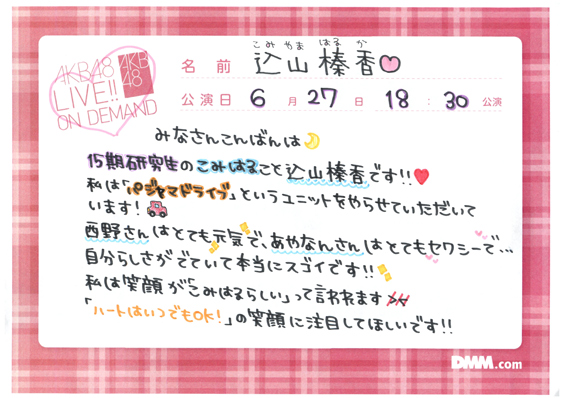 AKB48
LIVE!!
ON DEMAND
AKB
48
こみやま はるか
名前 込山榛香
公演日 6月27日 18:30公演
みなさんこんばんは
15期研究生のこみはること込山榛香です!!
私は「パジャマドライブ」というユニットをやらせていただいて
います!
西野さんはとても元気で、あやなんさんはとてもセクシーで…
自分らしさがでていて本当にスゴイです!!
私は笑顔が「こみはるらしい」って言われます
「ハートはいつでもOK!」の笑顔に注目してほしいです!!
DMM.com